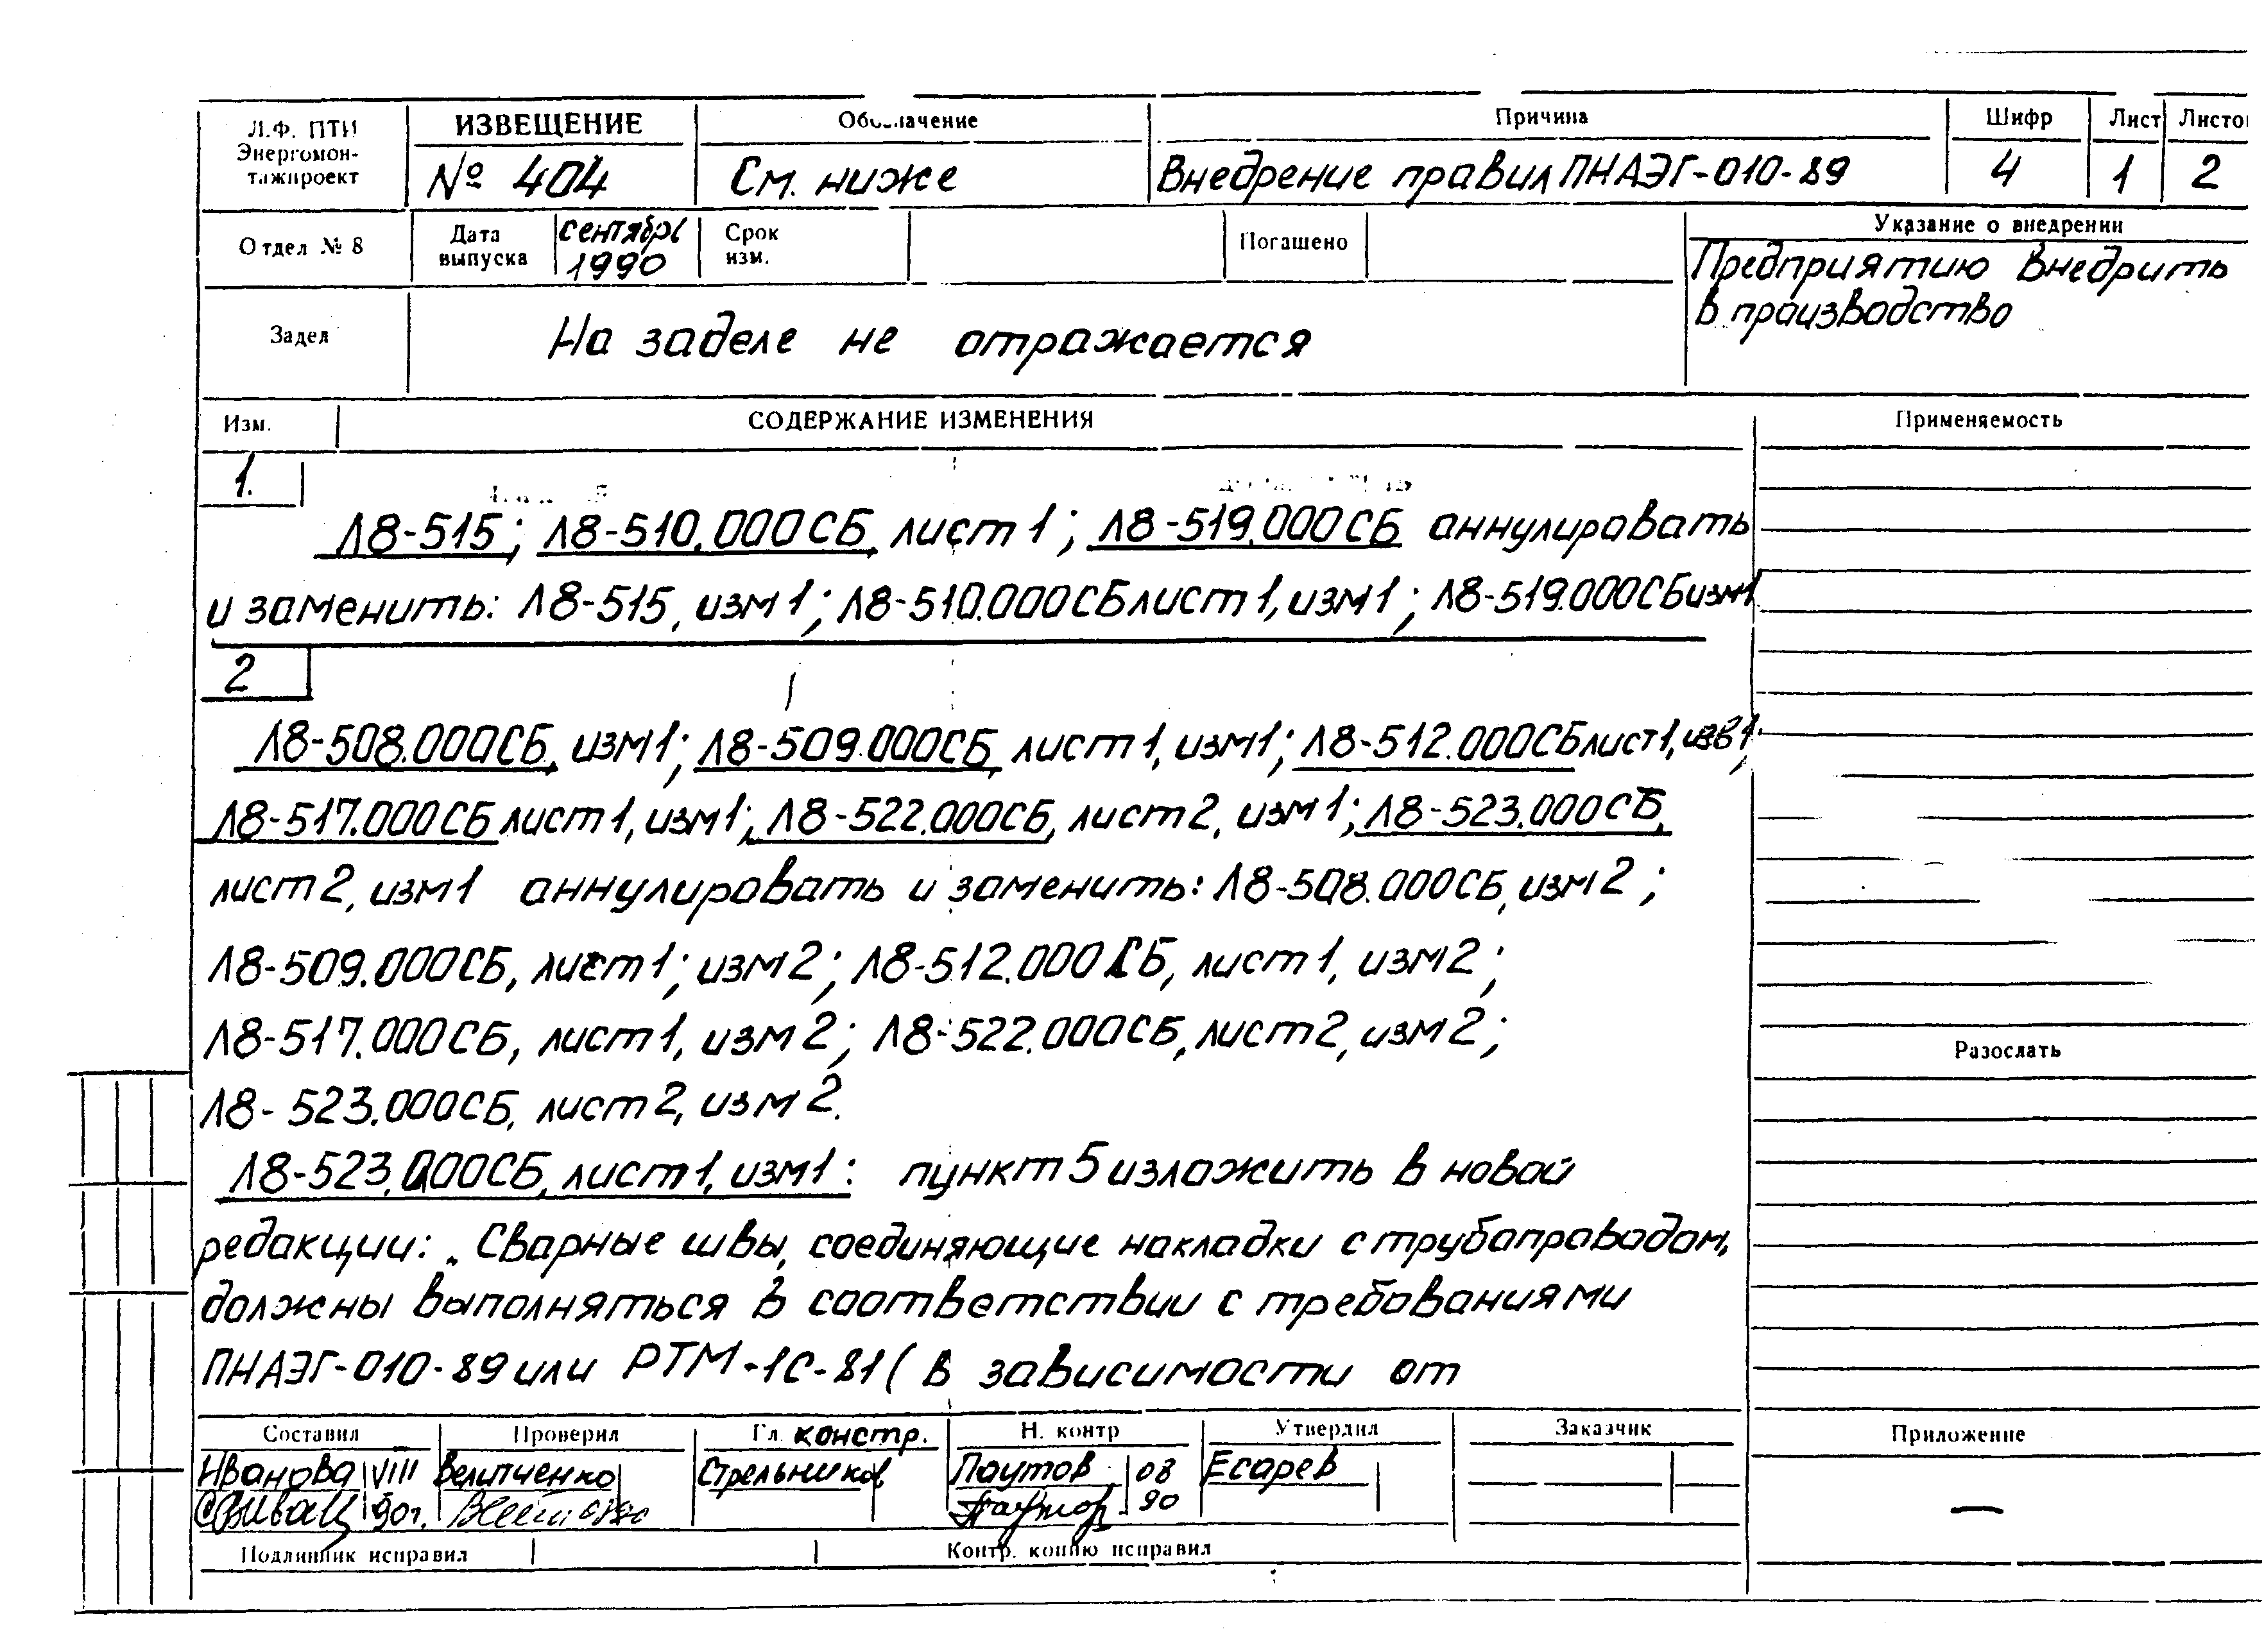 Л.Ф. ПТИ
Энергомон-
тажпроект
ИЗВЕЩЕНИЕ
№ 404
Обозначение
См. ниже
Причина
Внедрение правил ПНАЭГ-010-89
Шифр
4
Лист
1
Листо
2
Отдел № 8
Дата
выпуска
сентябрь
1990
Срок
изм.
Погашено
Указание о внедрении
Предприятию внедрить
в производство
Задел
На заделе не отражается
Изм.
СОДЕРЖАНИЕ ИЗМЕНЕНИЯ
Применяемость
1.
Л8-515; Л8-510.000СБ, лист 1; Л8-519.000СБ аннулировать
и заменить: Л8-515, изм 1; Л8-510.000СБ лист 1, изм 1; Л8-519.000СБ изм1
2
Л8-508.000СБ, изм1; Л8-509.000СБ, лист 1, изм1; Л8-512.000СБ лист 1,
Л8-517.000СБ лист 1, изм 1; Л8-522.000СБ, лист 2, изм 1; Л8-523.000СБ,
лист 2, изм 1 аннулировать и заменить: Л8-508.000СБ, изм 2;
Л8-509.000СБ, лист 1; изм 2; Л8-512.000СБ, лист 1, изм 2;
Л8-517.000СБ, лист 1, изм 2; Л8-522.000СБ, лист 2, изм 2;
Л8-523.000СБ, лист 2, изм 2.
Л8-523.000СБ, лист 1, изм 1: пункт 5 изложить в новой
редакции: „Сварные швы, соединяющие накладки с трубопроводом,
должны выполняться в соответствии с требованиями
ПНАЭГ-010-89 или РТМ-1С-81 (в зависимости от
Разослать
Составил
Проверил
Гл. констр.
Н. контр
Утвердил
Заказчик
Приложение
Иванова
VIII
Величенко
Стрельников
Паутов
08
Есарев
90г.
90
—
Подлинник исправил
Контр. копию исправил